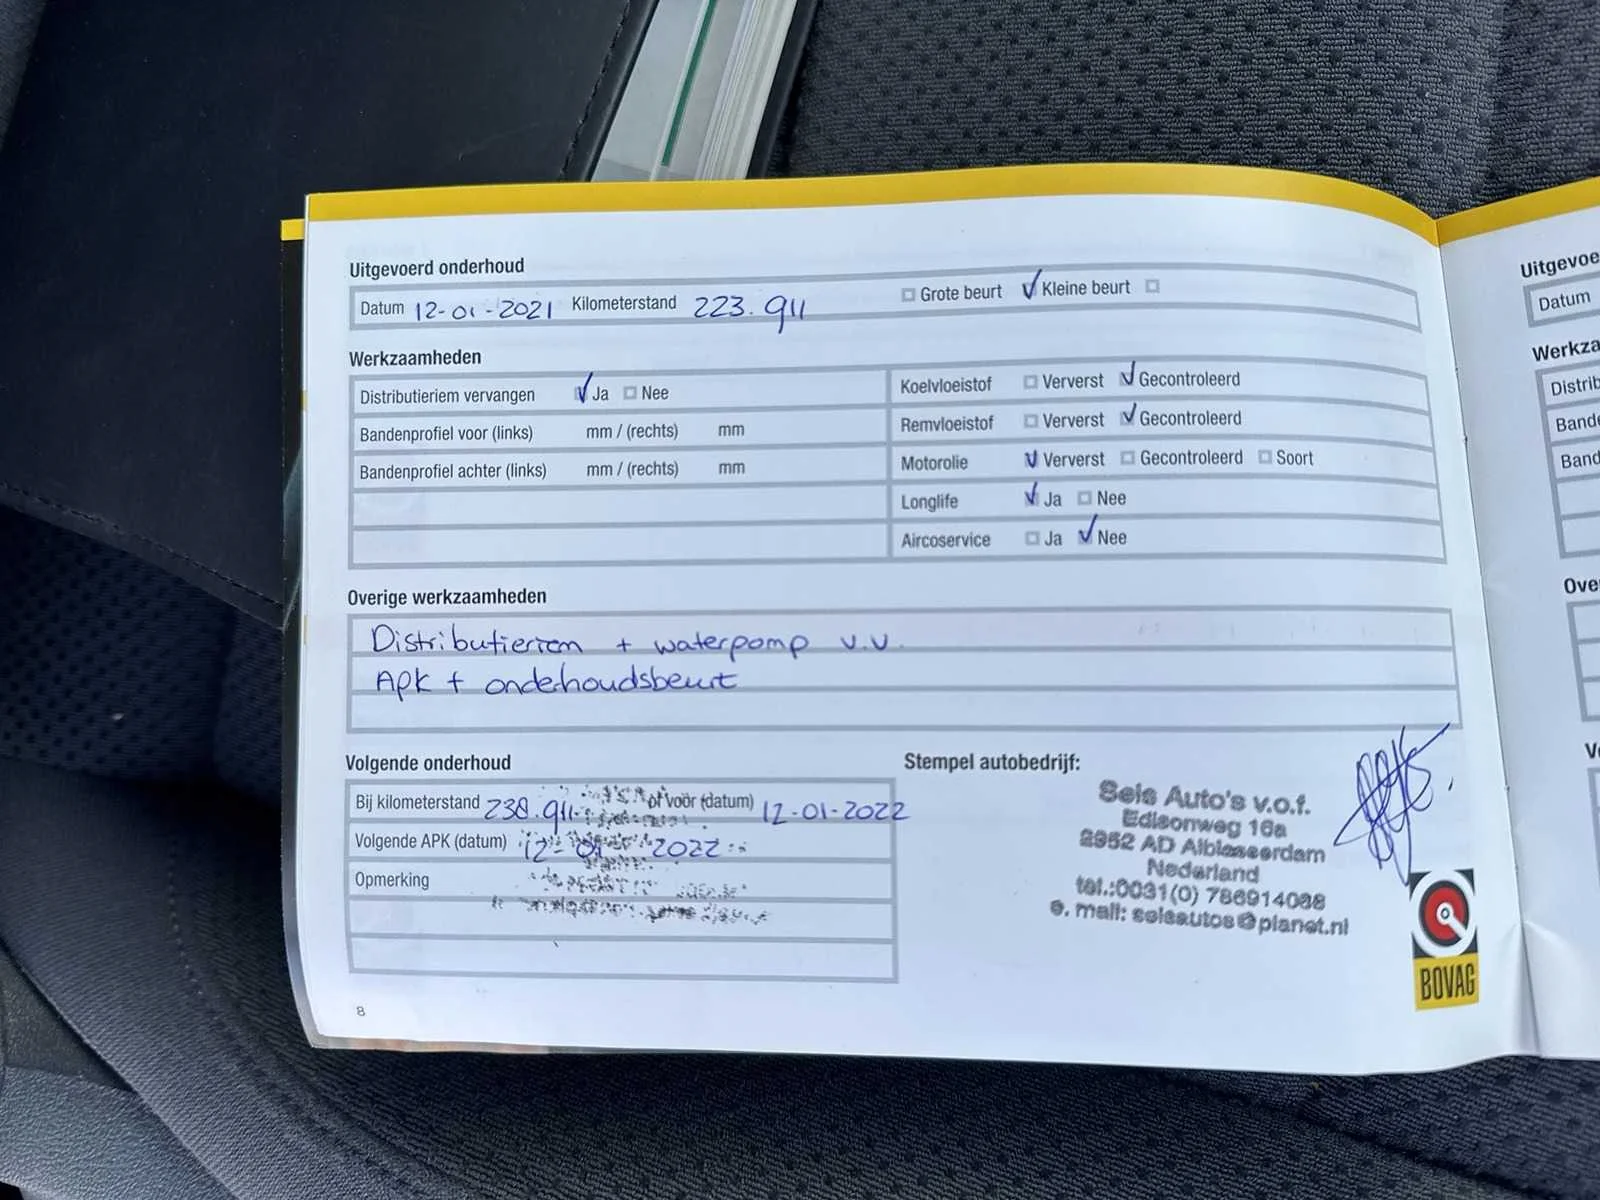 Uitgevoerd onderhoud
Datum 12-01-2021 Kilometerstand 223.911 Grote beurt Kleine beurt
Werkzaamheden
Distributieriem vervangen Ja Nee
Bandenprofiel voor (links) mm / (rechts) mm
Bandenprofiel achter (links) mm / (rechts) mm
Koelvloeistof Ververst Gecontroleerd
Remvloeistof Ververst Gecontroleerd
Motorolie Ververst Gecontroleerd Soort
Longlife Ja Nee
Aircoservice Ja Nee
Overige werkzaamheden
Distributieriem + waterpomp v.v.
Apk + onderhoudsbeurt
Volgende onderhoud
Bij kilometerstand 238.911 of voor (datum) 12-01-2022
Volgende APK (datum) 12-01-2022
Opmerking
Stempel autobedrijf:
Sels Auto's v.o.f.
Edisonweg 16a
2952 AD Alblasserdam
Nederland
tel.:0031(0) 786914088
e. mail: selsautos@planet.nl
BOVAG
8
Uitgevoe
Datum
Werkza
Distrib
Bande
Band
Ove